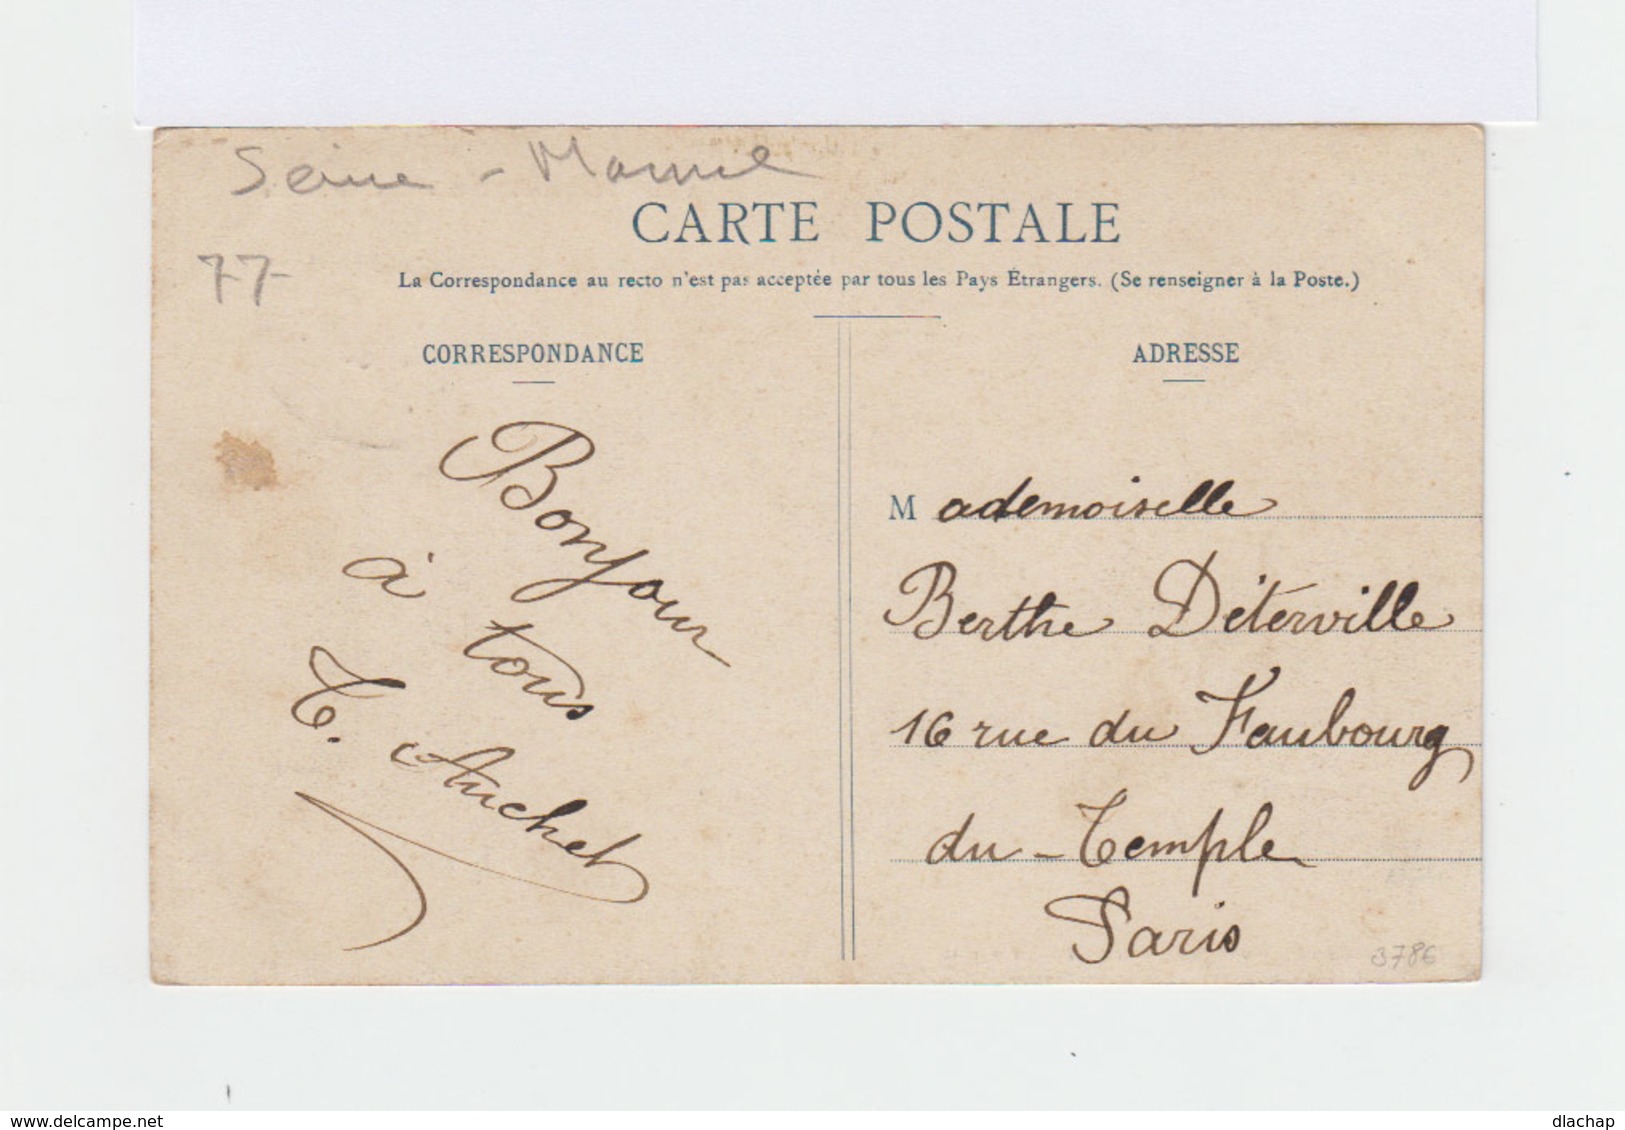 Seine - Marne
77
CARTE POSTALE
La Correspondance au recto n'est pas acceptée par tous les Pays Étrangers. (Se renseigner à la Poste.)
CORRESPONDANCE
Bonjour
à tous
T. Auchet
ADRESSE
Mademoiselle
Berthe Déterville
16 rue du Faubourg
du-Temple
Paris
3786
www.delcampe.net
dlachap